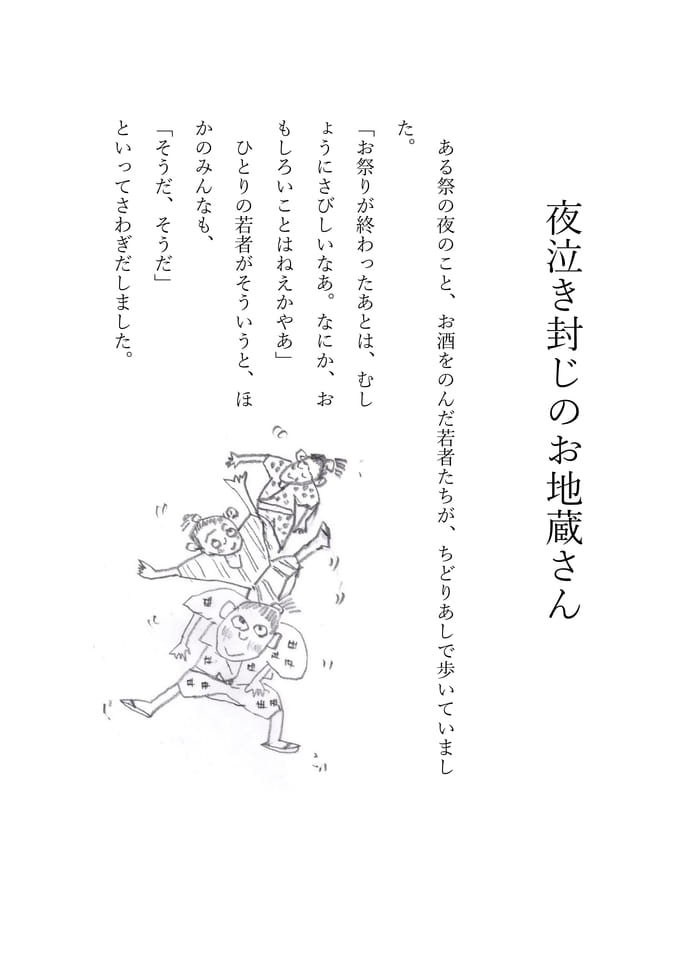 夜泣き封じのお地蔵さん
ある祭の夜のこと、お酒をのんだ若者たちが、ちどりあしで歩いていまし
た。
「お祭りが終わったあとは、むし
ょうにさびしいなあ。なにか、お
もしろいことはねえかやあ」
ひとりの若者がそういうと、ほ
かのみんなも、
「そうだ、そうだ」
といってさわぎだしました。